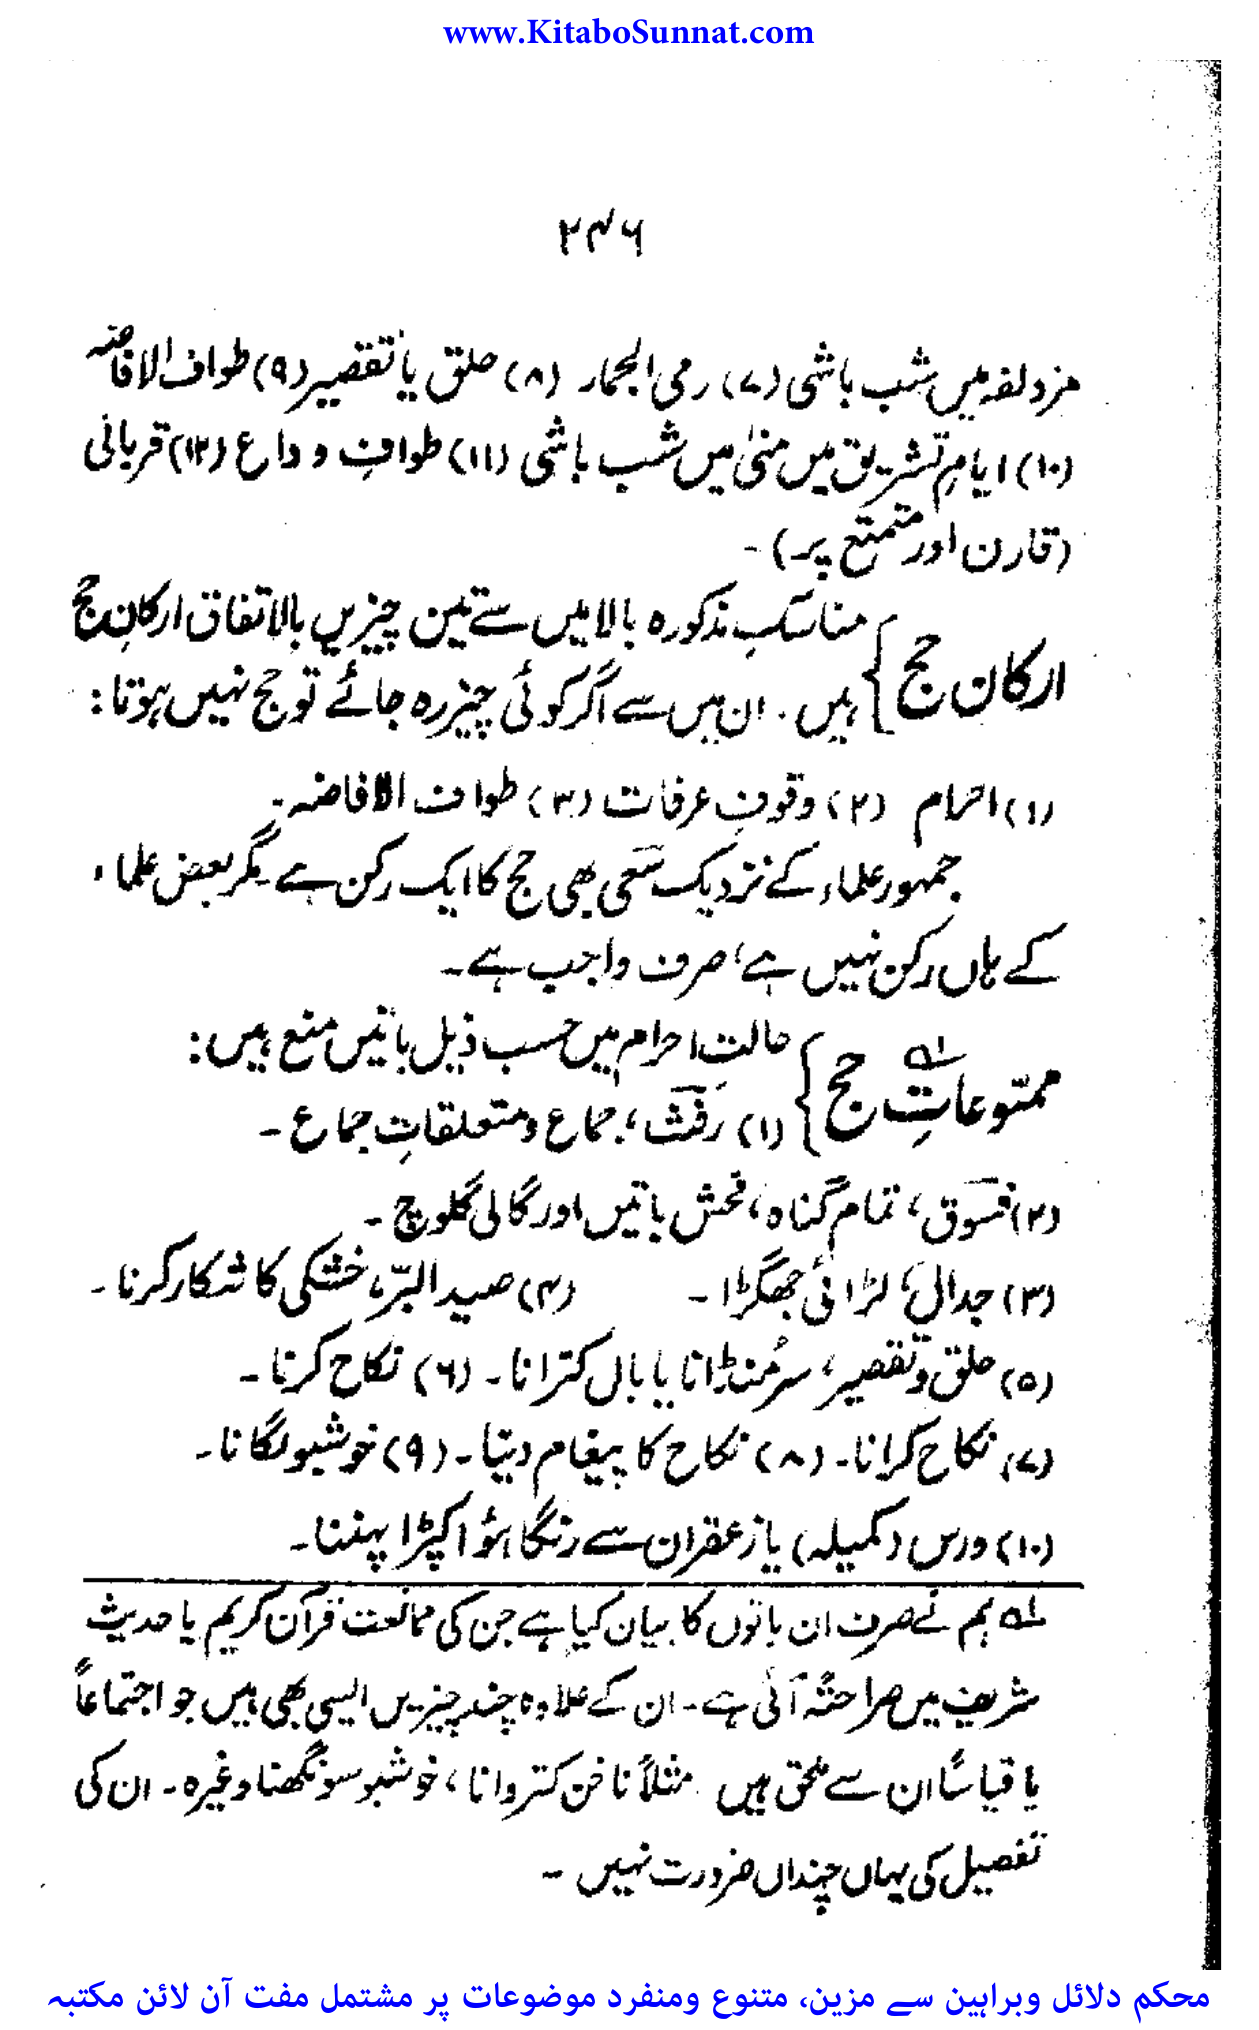 www.KitaboSunnat.com
۲۴۶
مزدلفہ میں شب باشی (۷) رمی الجمار (۸) حلق یا تقصیر (۹) طواف الافاضہ
(۱۰) ایامِ تشریق میں منیٰ میں شب باشی (۱۱) طوافِ وداع (۱۲) قربانی
(قارن اور متمتع پر)۔
ارکان حج } مناسکِ مذکورہ بالا میں سے تین چیزیں بالاتفاق ارکانِ حج
ہیں۔ ان میں سے اگر کوئی چیز رہ جائے تو حج نہیں ہوتا:
(۱) احرام (۲) وقوفِ عرفات (۳) طواف الافاضہ۔
جمہور علماء کے نزدیک سعی بھی حج کا ایک رکن ہے مگر بعض علماء
کے ہاں رکن نہیں ہے، صرف واجب ہے۔
ممنوعاتِ حج لہ } حالتِ احرام میں حسب ذیل باتیں منع ہیں:
(۱) رفث، جماع و متعلقاتِ جماع۔
(۲) فسوق، تمام گناہ، فحش باتیں اور گالی گلوچ۔
(۳) جدال، لڑائی جھگڑا۔ (۴) صید البرّ، خشکی کا شکار کرنا۔
(۵) حلق و تقصیر، سر مُنڈانا یا بال کترانا۔ (۶) نکاح کرنا۔
(۷) نکاح کرانا۔ (۸) نکاح کا پیغام دینا۔ (۹) خوشبو لگانا۔
(۱۰) ورس (کمیلہ) یا زعفران سے رنگا ہؤا کپڑا پہننا۔
لہ ہم نے صرف ان باتوں کا بیان کیا ہے جن کی ممانعت قرآن کریم یا حدیث
شریف میں صراحتہً آئی ہے۔ ان کے علاوہ چند چیزیں ایسی بھی ہیں جو اجتماعاً
یا قیاساً ان سے ملحق ہیں مثلاً ناخن کتروانا، خوشبو سونگھنا وغیرہ۔ ان کی
تفصیل کی یہاں چنداں ضرورت نہیں۔
محکم دلائل وبراہین سے مزین، متنوع ومنفرد موضوعات پر مشتمل مفت آن لائن مکتبہ